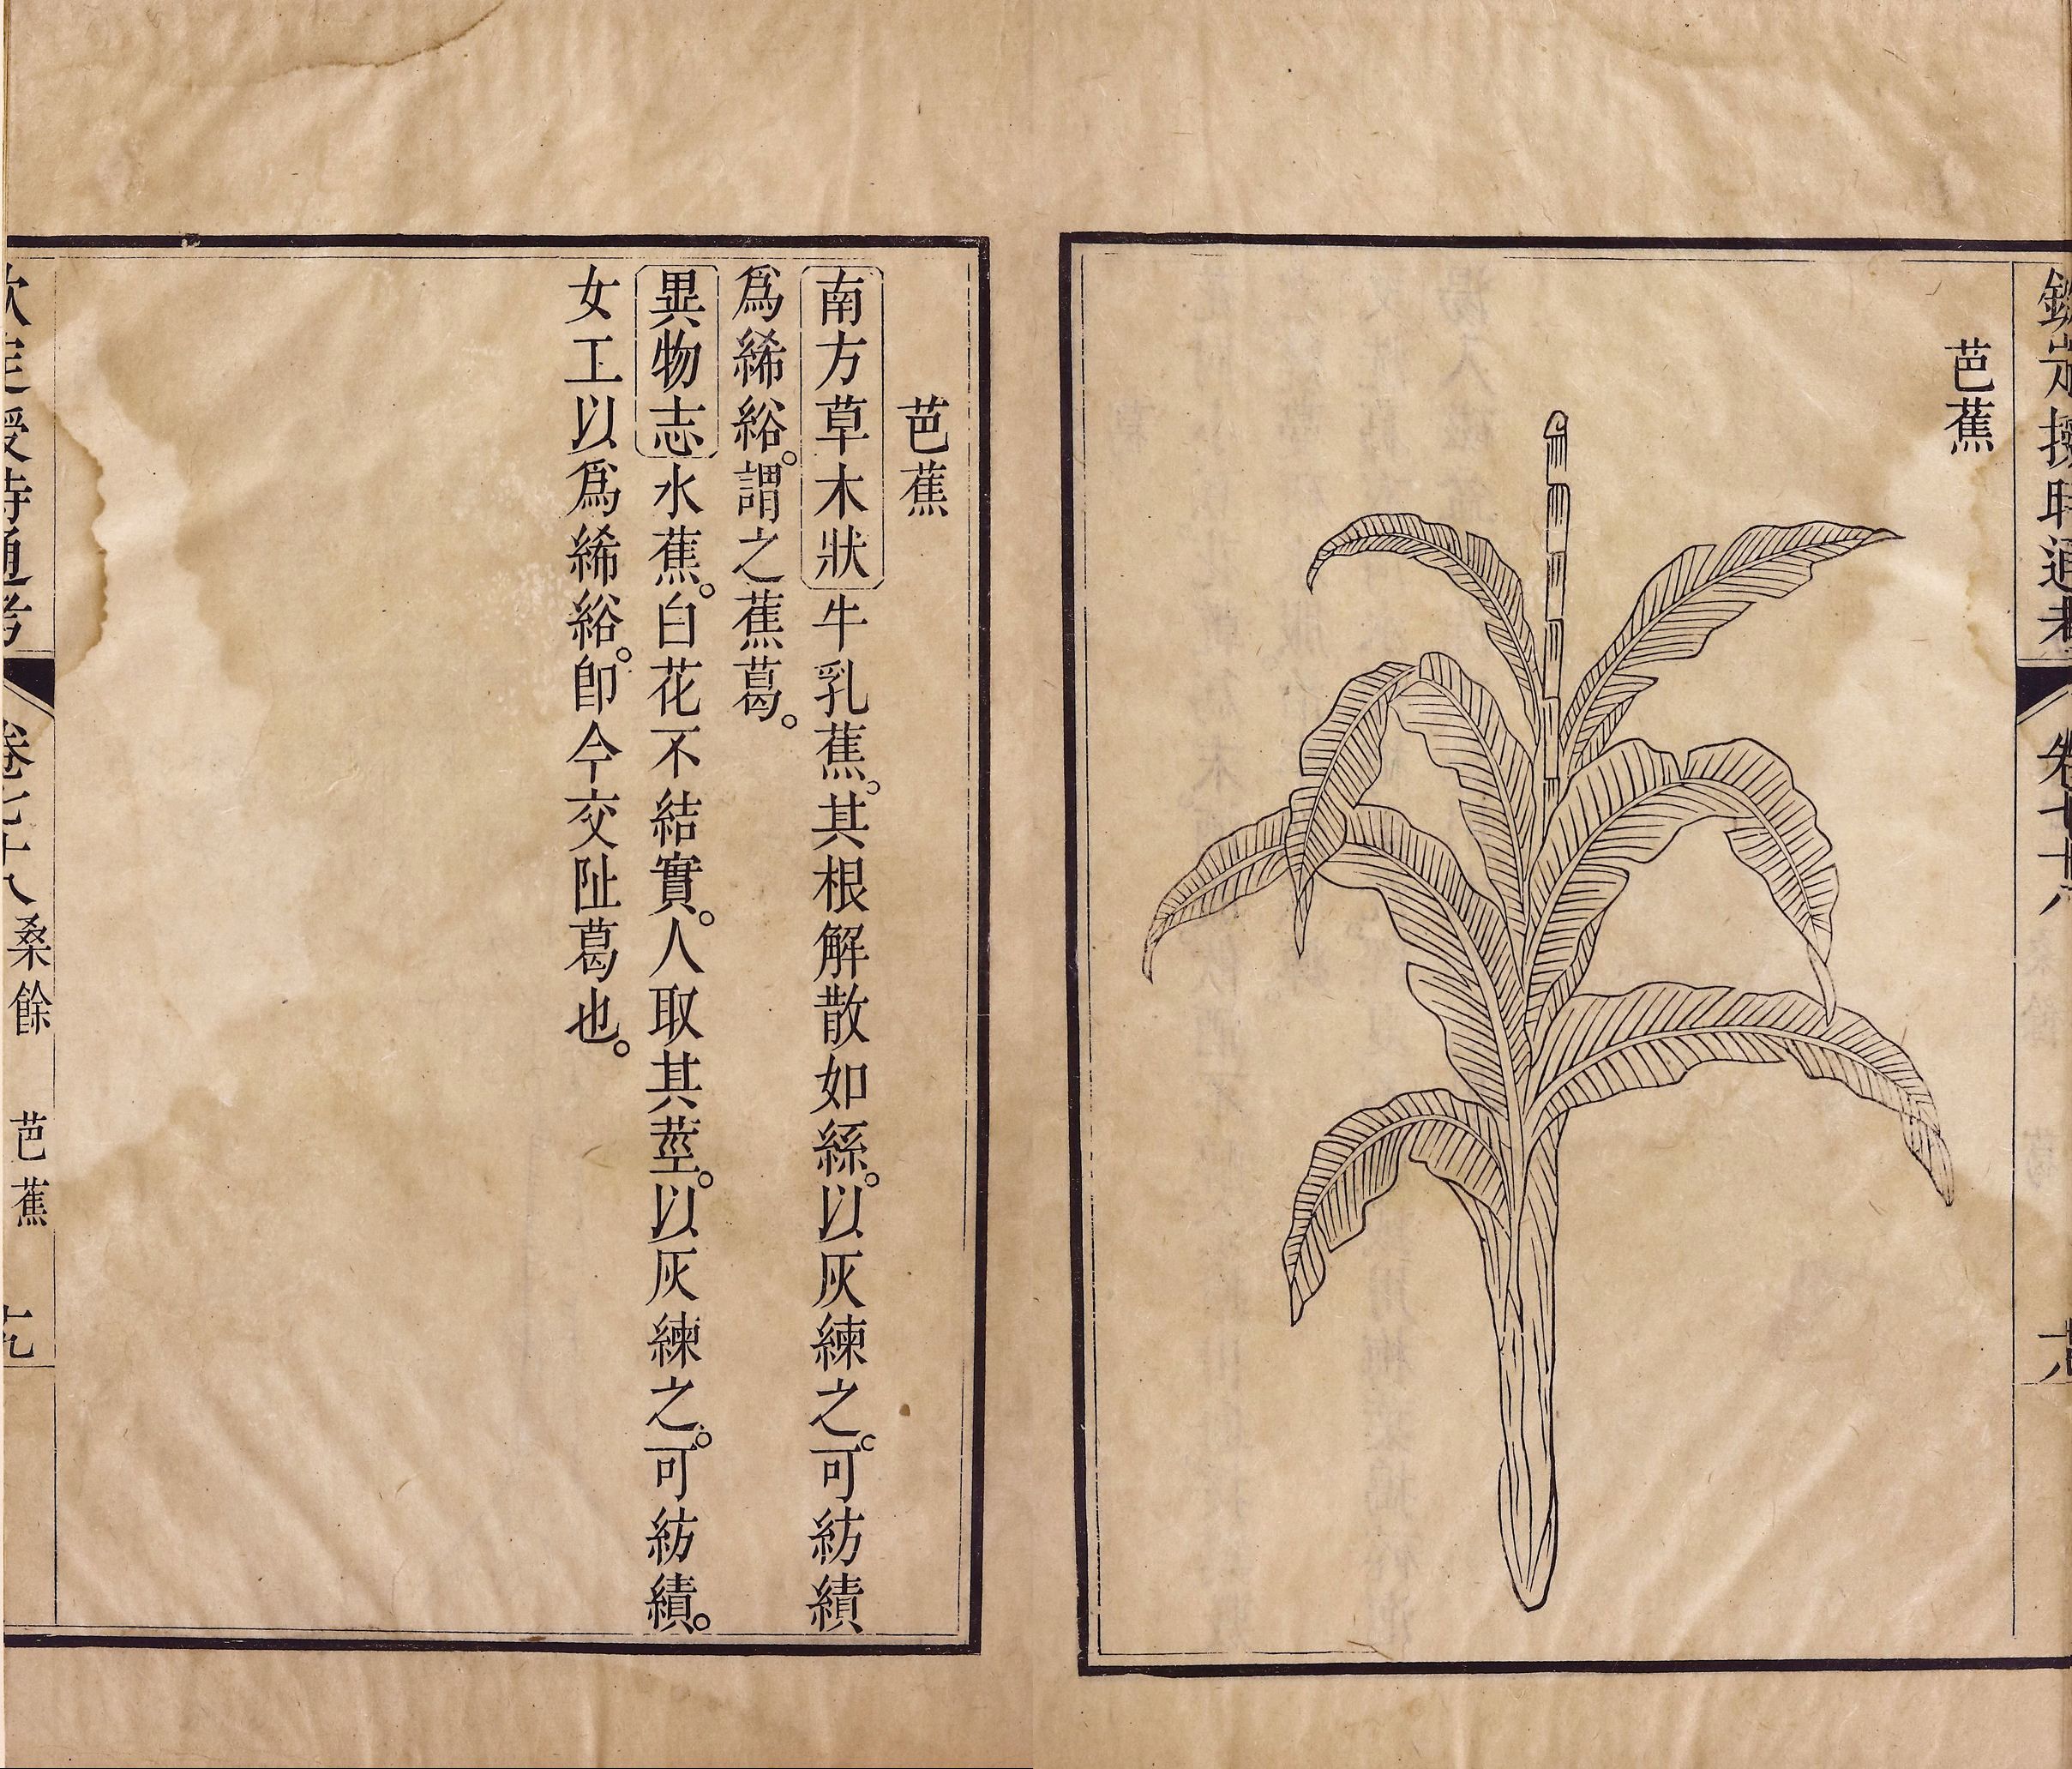 欽定授時通考 卷七十八 十八
芭蕉
芭蕉
南方草木狀牛乳蕉。其根解散如絲。以灰練之。可紡績
爲絺綌。謂之蕉葛。
異物志水蕉。白花不結實。人取其莖。以灰練之。可紡績。
女工以爲絺綌。卽今交阯葛也。
欽定授時通考 卷七十八 桑餘 芭蕉 十九